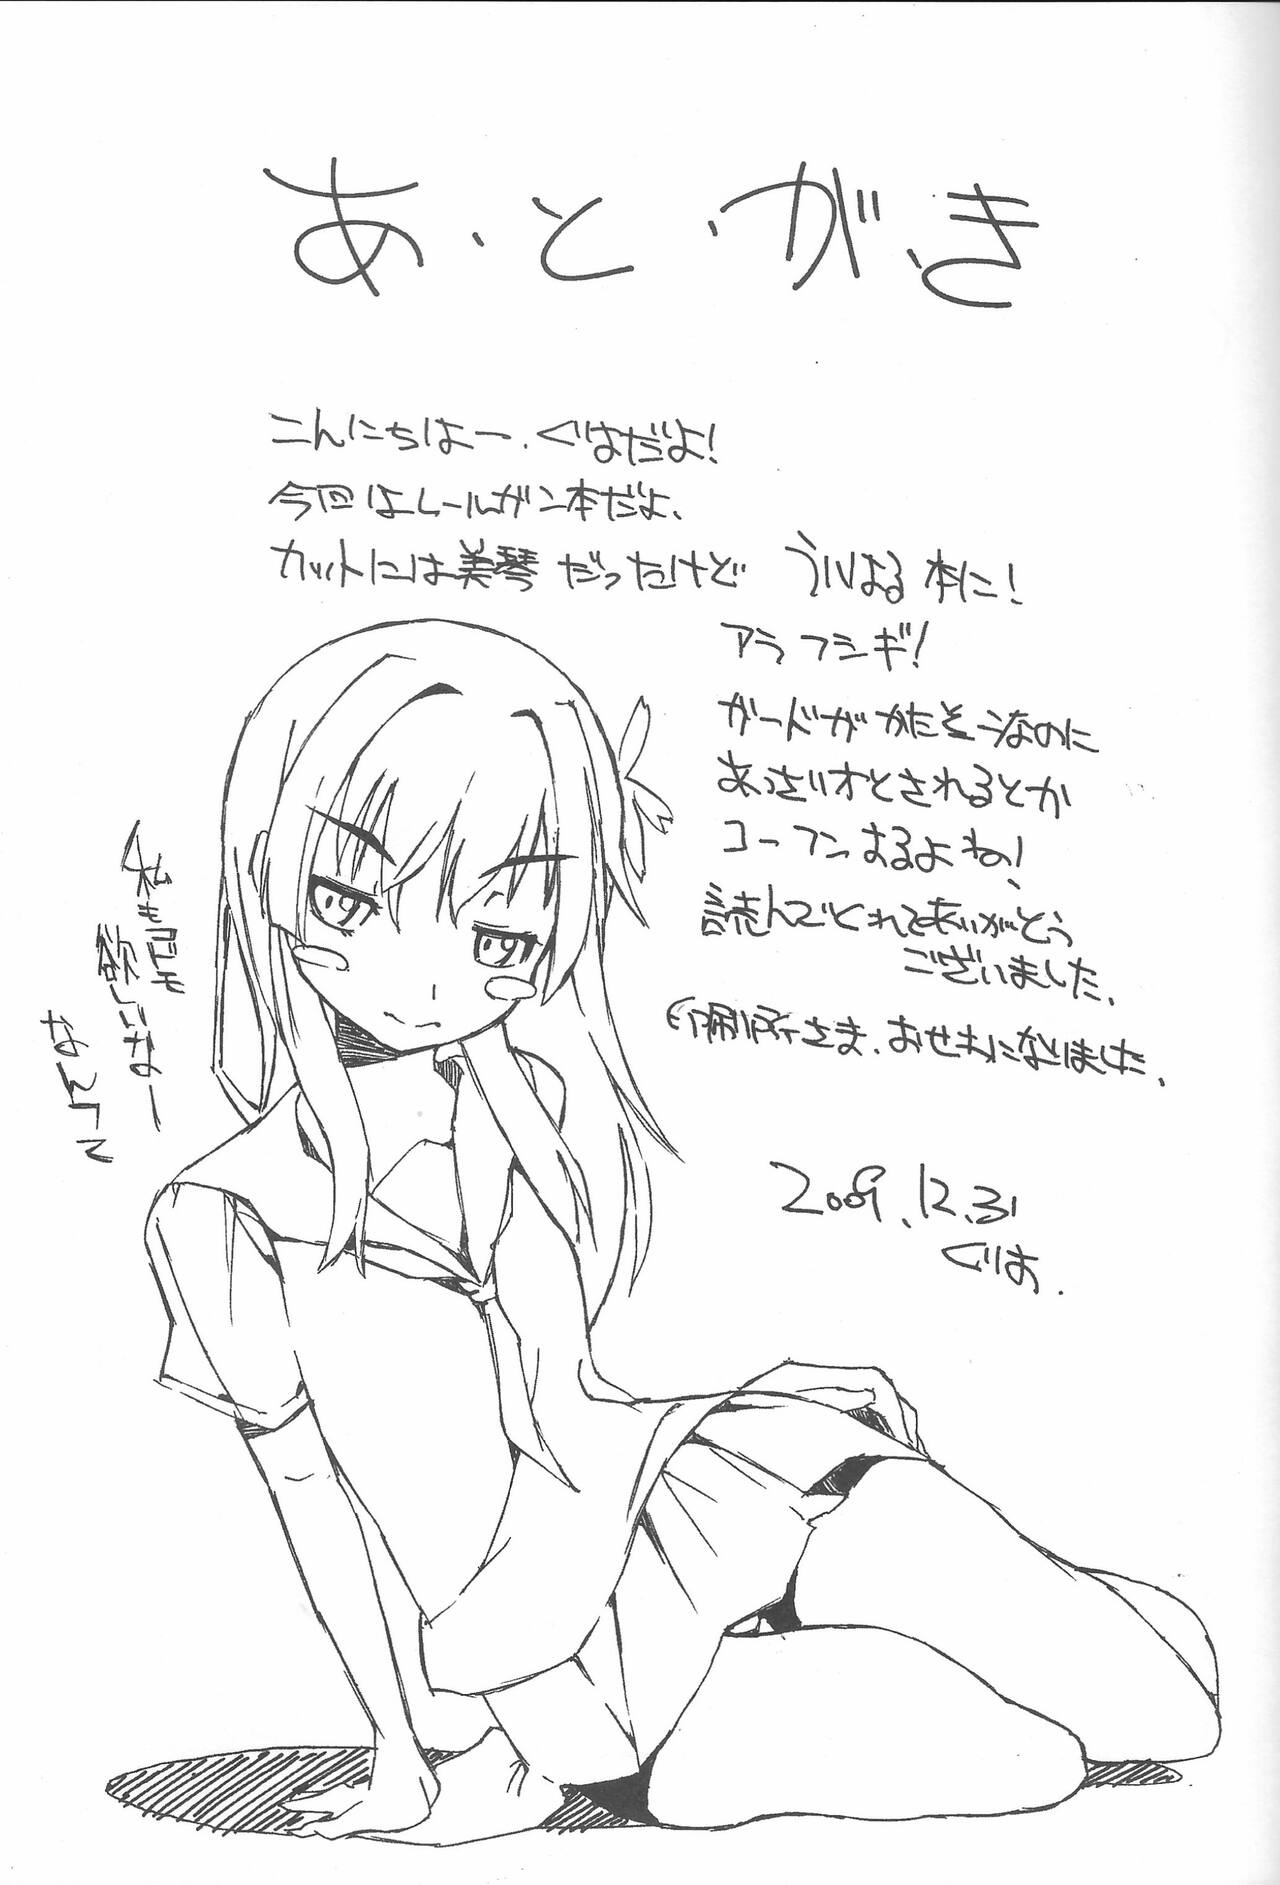 あ・と・が・き
こんにちはー、くりはだよ!
今回はレールガン本だよ、
カットには美琴だったけど ういはる本に!
アラフシギ!
ガードがかたそーなのに
あっさりオとされるとか
コーフンするよね!
読んでくれてありがとう
ございました、
印刷所さま、おせわになりました、
2009.12.31
くりは.
私も
欲しいなー
なんて